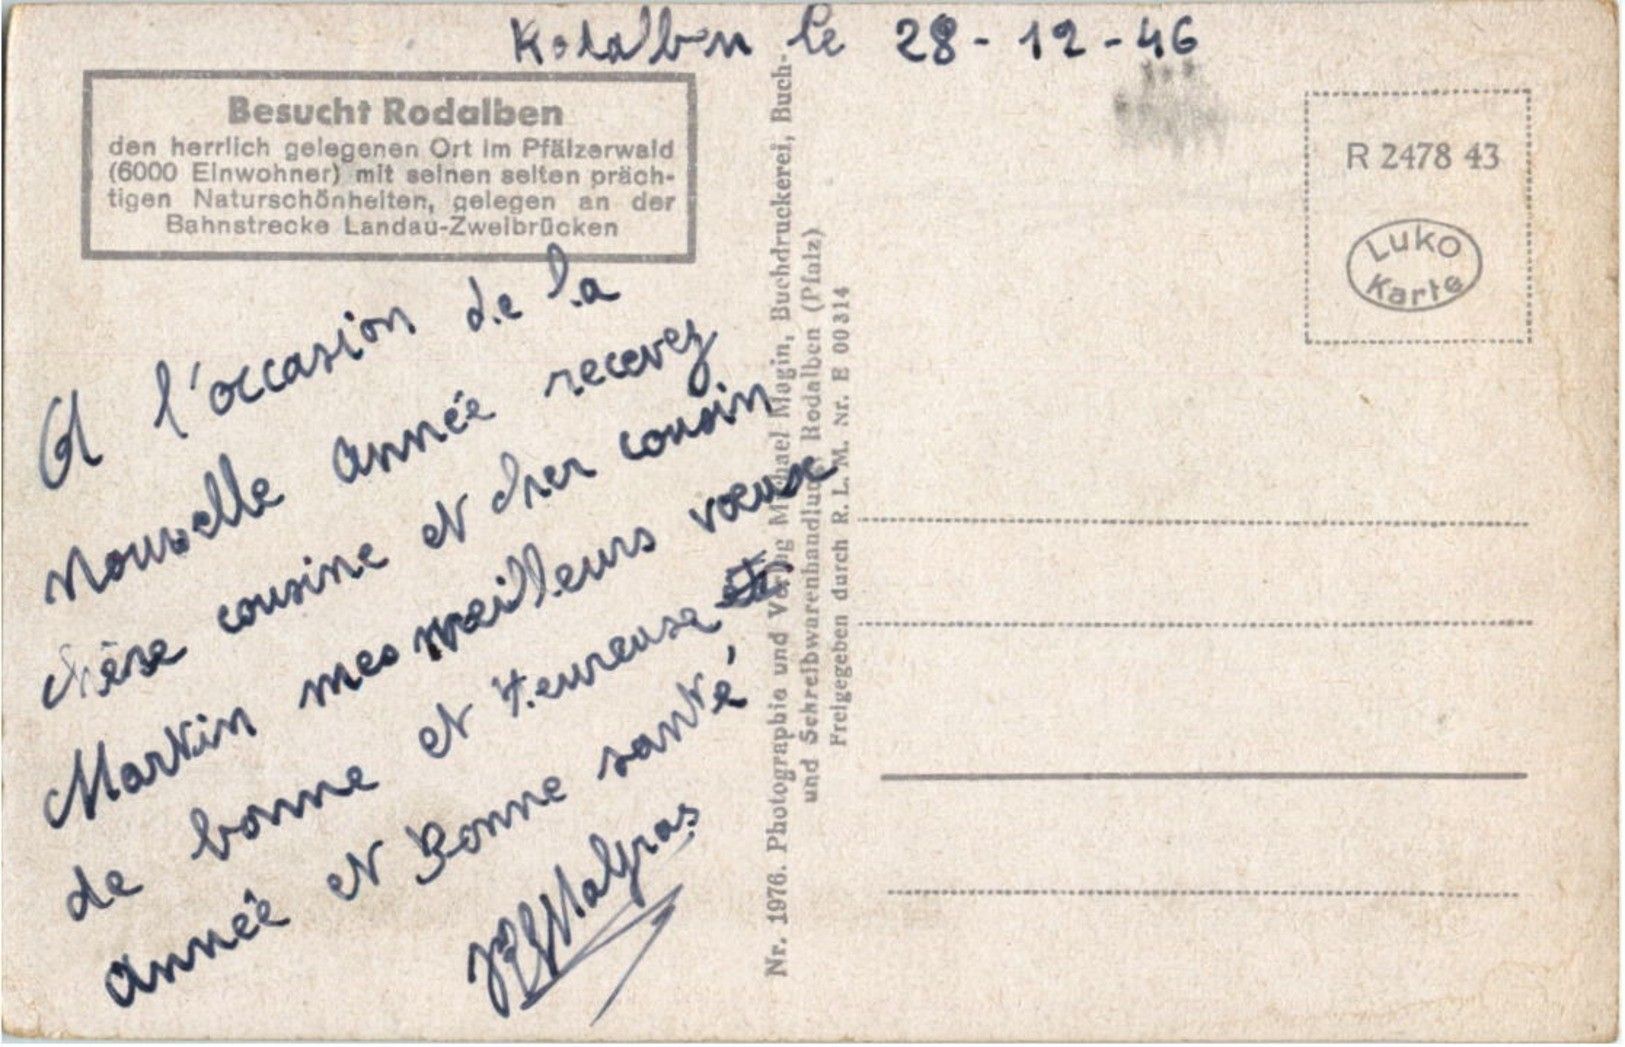 Rodalben le 28-12-46
Besucht Rodalben
den herrlich gelegenen Ort im Pfälzerwald
(6000 Einwohner) mit seinen selten präch-
tigen Naturschönheiten, gelegen an der
Bahnstrecke Landau-Zweibrücken
A l'occasion de la
Nouvelle année recevez
chère cousine et cher cousin
Martin mes meilleurs vœux
de bonne et Heureuse
année et Bonne santé
Malgras
Nr. 1976. Photographie und Verlag Michael Magin, Buchdruckerei, Buch-
und Schreibwarenhandlung Rodalben (Pfalz)
Freigegeben durch R. L. M. Nr. E 00314
R 2478 43
Luko
Karte